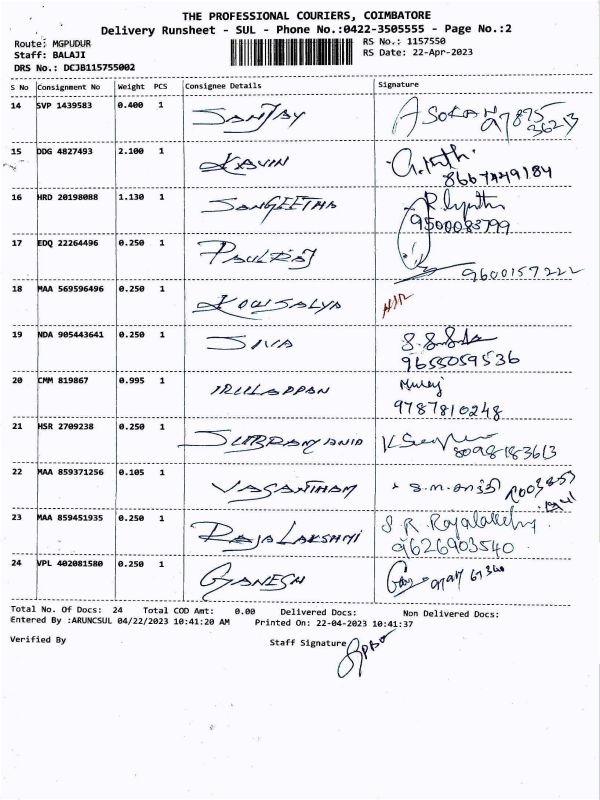 THE PROFESSIONAL COURIERS, COIMBATORE
Delivery Runsheet - SUL - Phone No.:0422-3505555 - Page No.:2
Route: MGPUDUR
RS No.: 1157550
Staff: BALAJI
RS Date: 22-Apr-2023
DRS No.: DCJB115755002
S No Consignment No Weight PCS Consignee Details Signature
14 SVP 1439583 0.400 1 SANJAY ASOKAN
97875
36213
15 DDG 4827493 2.100 1 KAVIN
8667449184
16 HRD 20198088 1.130 1 SANGEETHA
9500083799
17 EDQ 22264496 0.250 1 PAULRAJ
9600157222
18 MAA 569596496 0.250 1 KOWSALYA
19 NDA 905443641 0.250 1 SIVA
9655059536
20 CMM 819867 0.995 1 IRULAPPAN Muraj
9787810248
21 HSR 2709238 0.250 1 SUBRAMANIA
8098183613
22 MAA 859371256 0.105 1 VASANTHAM
23 MAA 859451935 0.250 1 RAJALAKSHMI S R Rajalakshmi
9626903540
24 VPL 402081580 0.250 1 GANESH
Total No. Of Docs: 24 Total COD Amt: 0.00 Delivered Docs: Non Delivered Docs:
Entered By :ARUNCSUL 04/22/2023 10:41:20 AM Printed On: 22-04-2023 10:41:37
Verified By Staff Signature